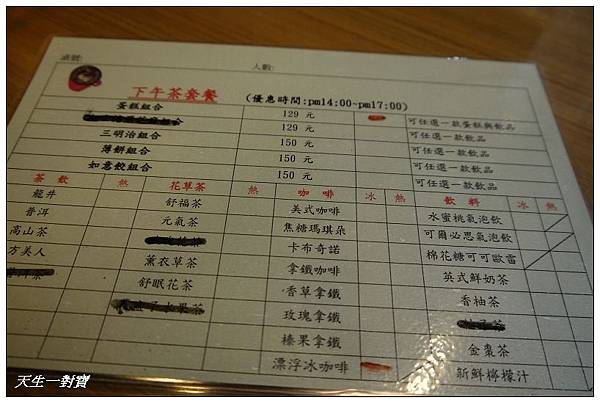 桌號:
人數:
下午茶套餐 (優惠時間:pm14:00~pm17:00)
蛋糕組合 129 元 可任選一款蛋糕與飲品
組合 129 元 可任選一款飲品
三明治組合 150 元 可任選一款飲品
薄餅組合 150 元 可任選一款飲品
如意餃組合 150 元 可任選一款飲品
茶 飲 熱 花草茶 熱 咖 啡 冰 熱 飲 料 冰 熱
龍井 舒福茶 美式咖啡 水蜜桃氣泡飲
普洱 元氣茶 焦糖瑪琪朵 可爾必思氣泡飲
高山茶 卡布奇諾 棉花糖可可歐蕾
方美人 薰衣草茶 拿鐵咖啡 英式鮮奶茶
舒眠花茶 香草拿鐵 香柚茶
果茶 玫瑰拿鐵
榛果拿鐵 金棗茶
漂浮冰咖啡 新鮮檸檬汁
天生一對寶